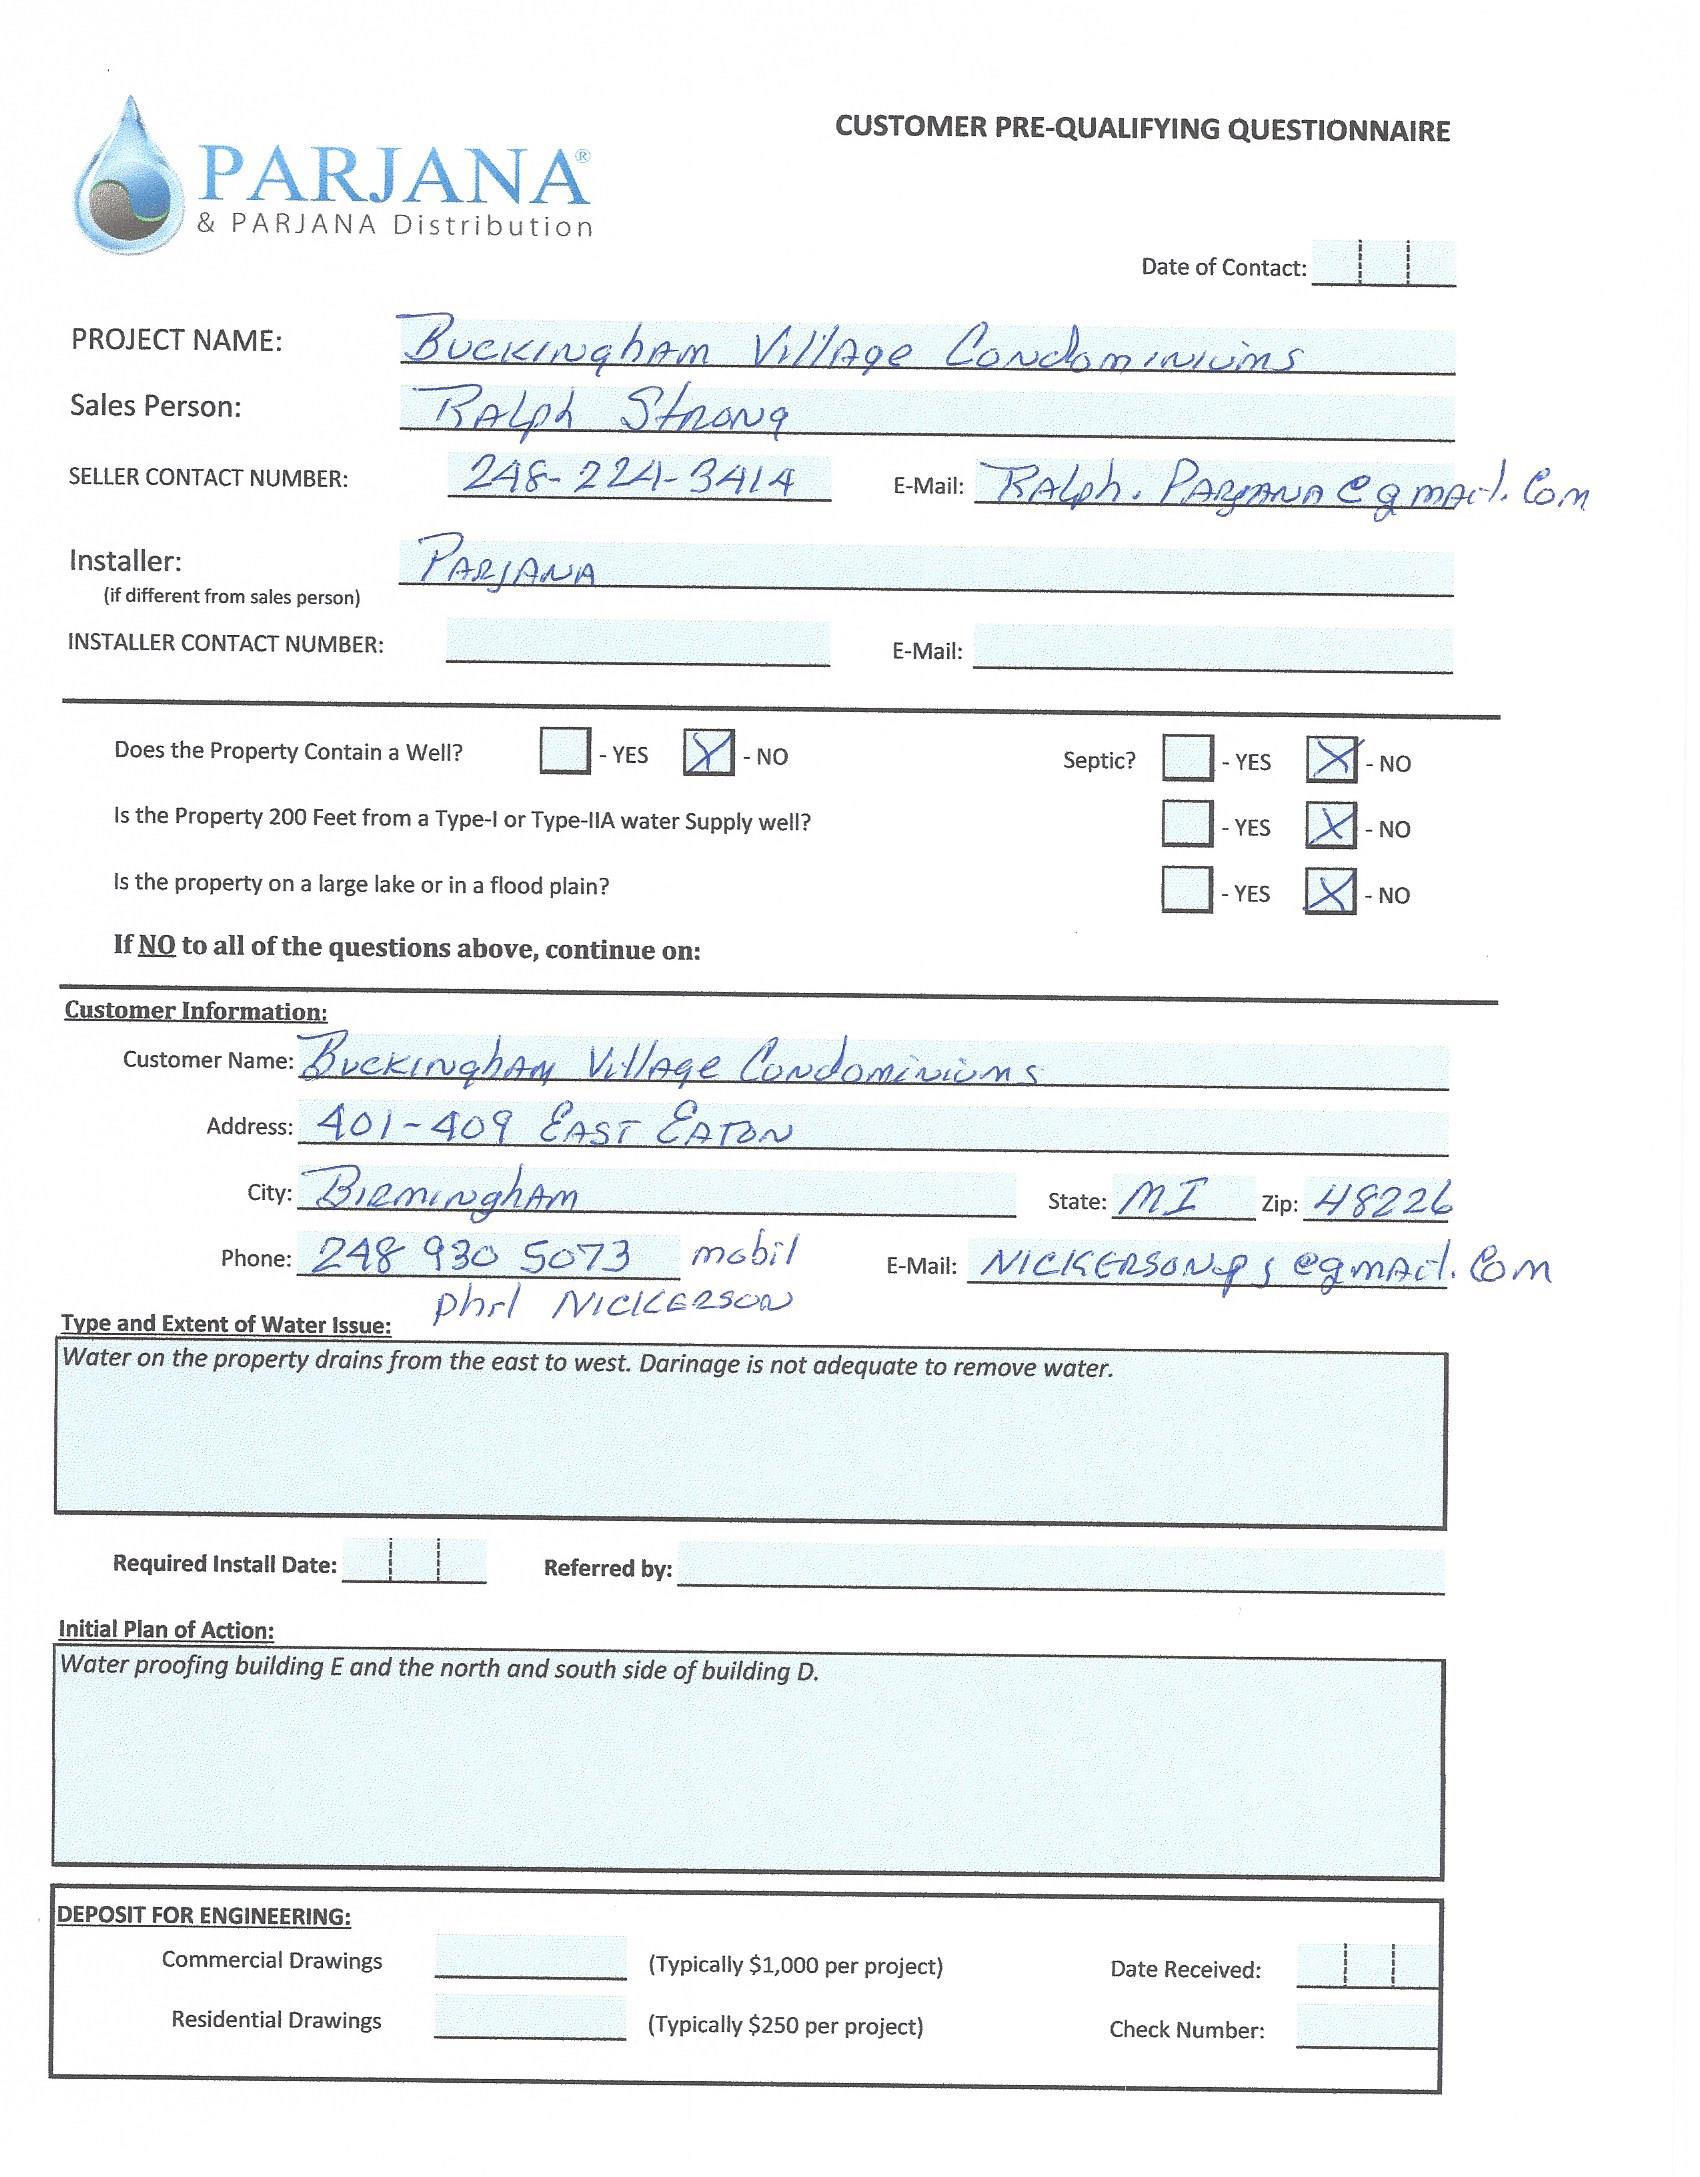 CUSTOMER PRE-QUALIFYING QUESTIONNAIRE
PARJANA®
& PARJANA Distribution
Date of Contact:
PROJECT NAME: Buckingham Village Condominiums
Sales Person: Ralph Strong
SELLER CONTACT NUMBER: 248-224-3414 E-Mail: Ralph.Parjana@gmail.com
Installer: Parjana
(if different from sales person)
INSTALLER CONTACT NUMBER: E-Mail:
Does the Property Contain a Well? - YES X - NO Septic? - YES X - NO
Is the Property 200 Feet from a Type-I or Type-IIA water Supply well? - YES X - NO
Is the property on a large lake or in a flood plain? - YES X - NO
If NO to all of the questions above, continue on:
Customer Information:
Customer Name: Buckingham Village Condominiums
Address: 401-409 East Eaton
City: Birmingham State: MI Zip: 48226
Phone: 248 930 5073 mobil E-Mail:
Nickerson
Type and Extent of Water Issue:
Water on the property drains from the east to west. Darinage is not adequate to remove water.
Required Install Date: Referred by:
Initial Plan of Action:
Water proofing building E and the north and south side of building D.
DEPOSIT FOR ENGINEERING:
Commercial Drawings (Typically $1,000 per project) Date Received:
Residential Drawings (Typically $250 per project) Check Number: